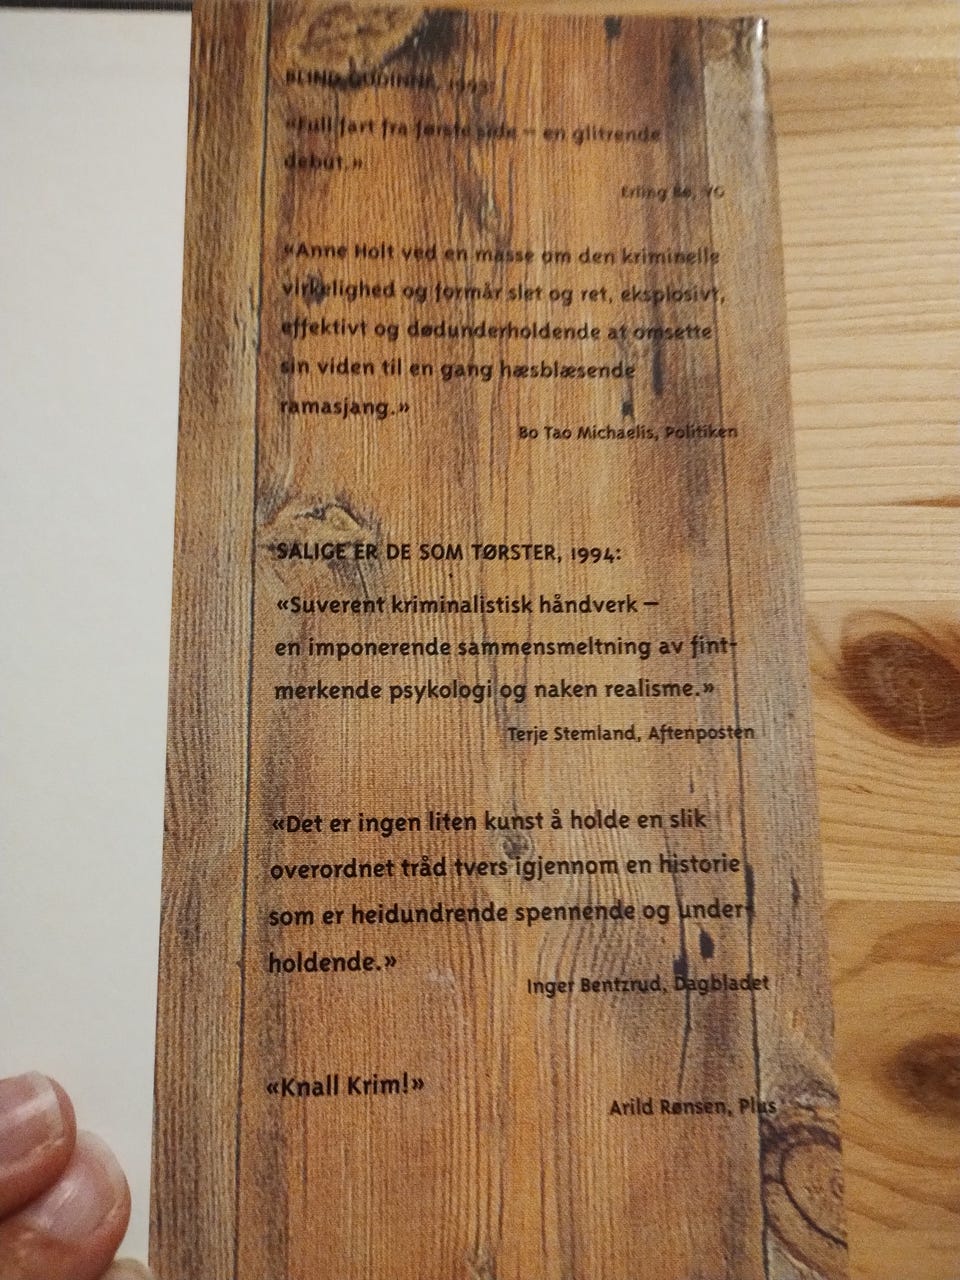 BLIND GUDINNE, 1993:
«Full fart fra første side – en glitrende
debut.»
Erling Bø, VG
«Anne Holt ved en masse om den kriminelle
virkelighed og formår slet og ret, eksplosivt,
effektivt og dødunderholdende at omsette
sin viden til en gang hæsblæsende
ramasjang.»
Bo Tao Michaelis, Politiken
SALIGE ER DE SOM TØRSTER, 1994:
«Suverent kriminalistisk håndverk –
en imponerende sammensmeltning av fint-
merkende psykologi og naken realisme.»
Terje Stemland, Aftenposten
«Det er ingen liten kunst å holde en slik
overordnet tråd tvers igjennom en historie
som er heidundrende spennende og under-
holdende.»
Inger Bentzrud, Dagbladet
«Knall Krim!»
Arild Rønsen, Plus